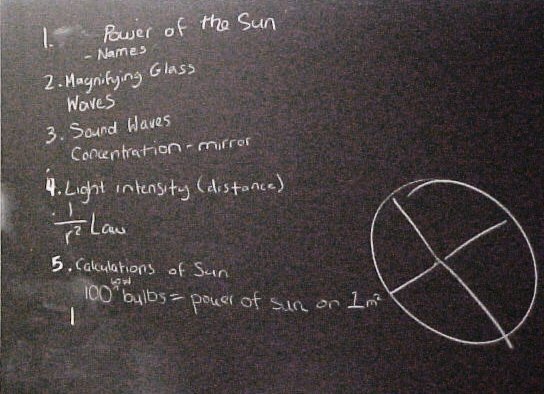 1. Power of the Sun
- Names
2. Magnifying Glass
Waves
3. Sound Waves
Concentration - mirror
4. Light intensity (distance)
1/r² Law
5. Calculations of Sun
100 bulbs = power of sun on 1 m²
1